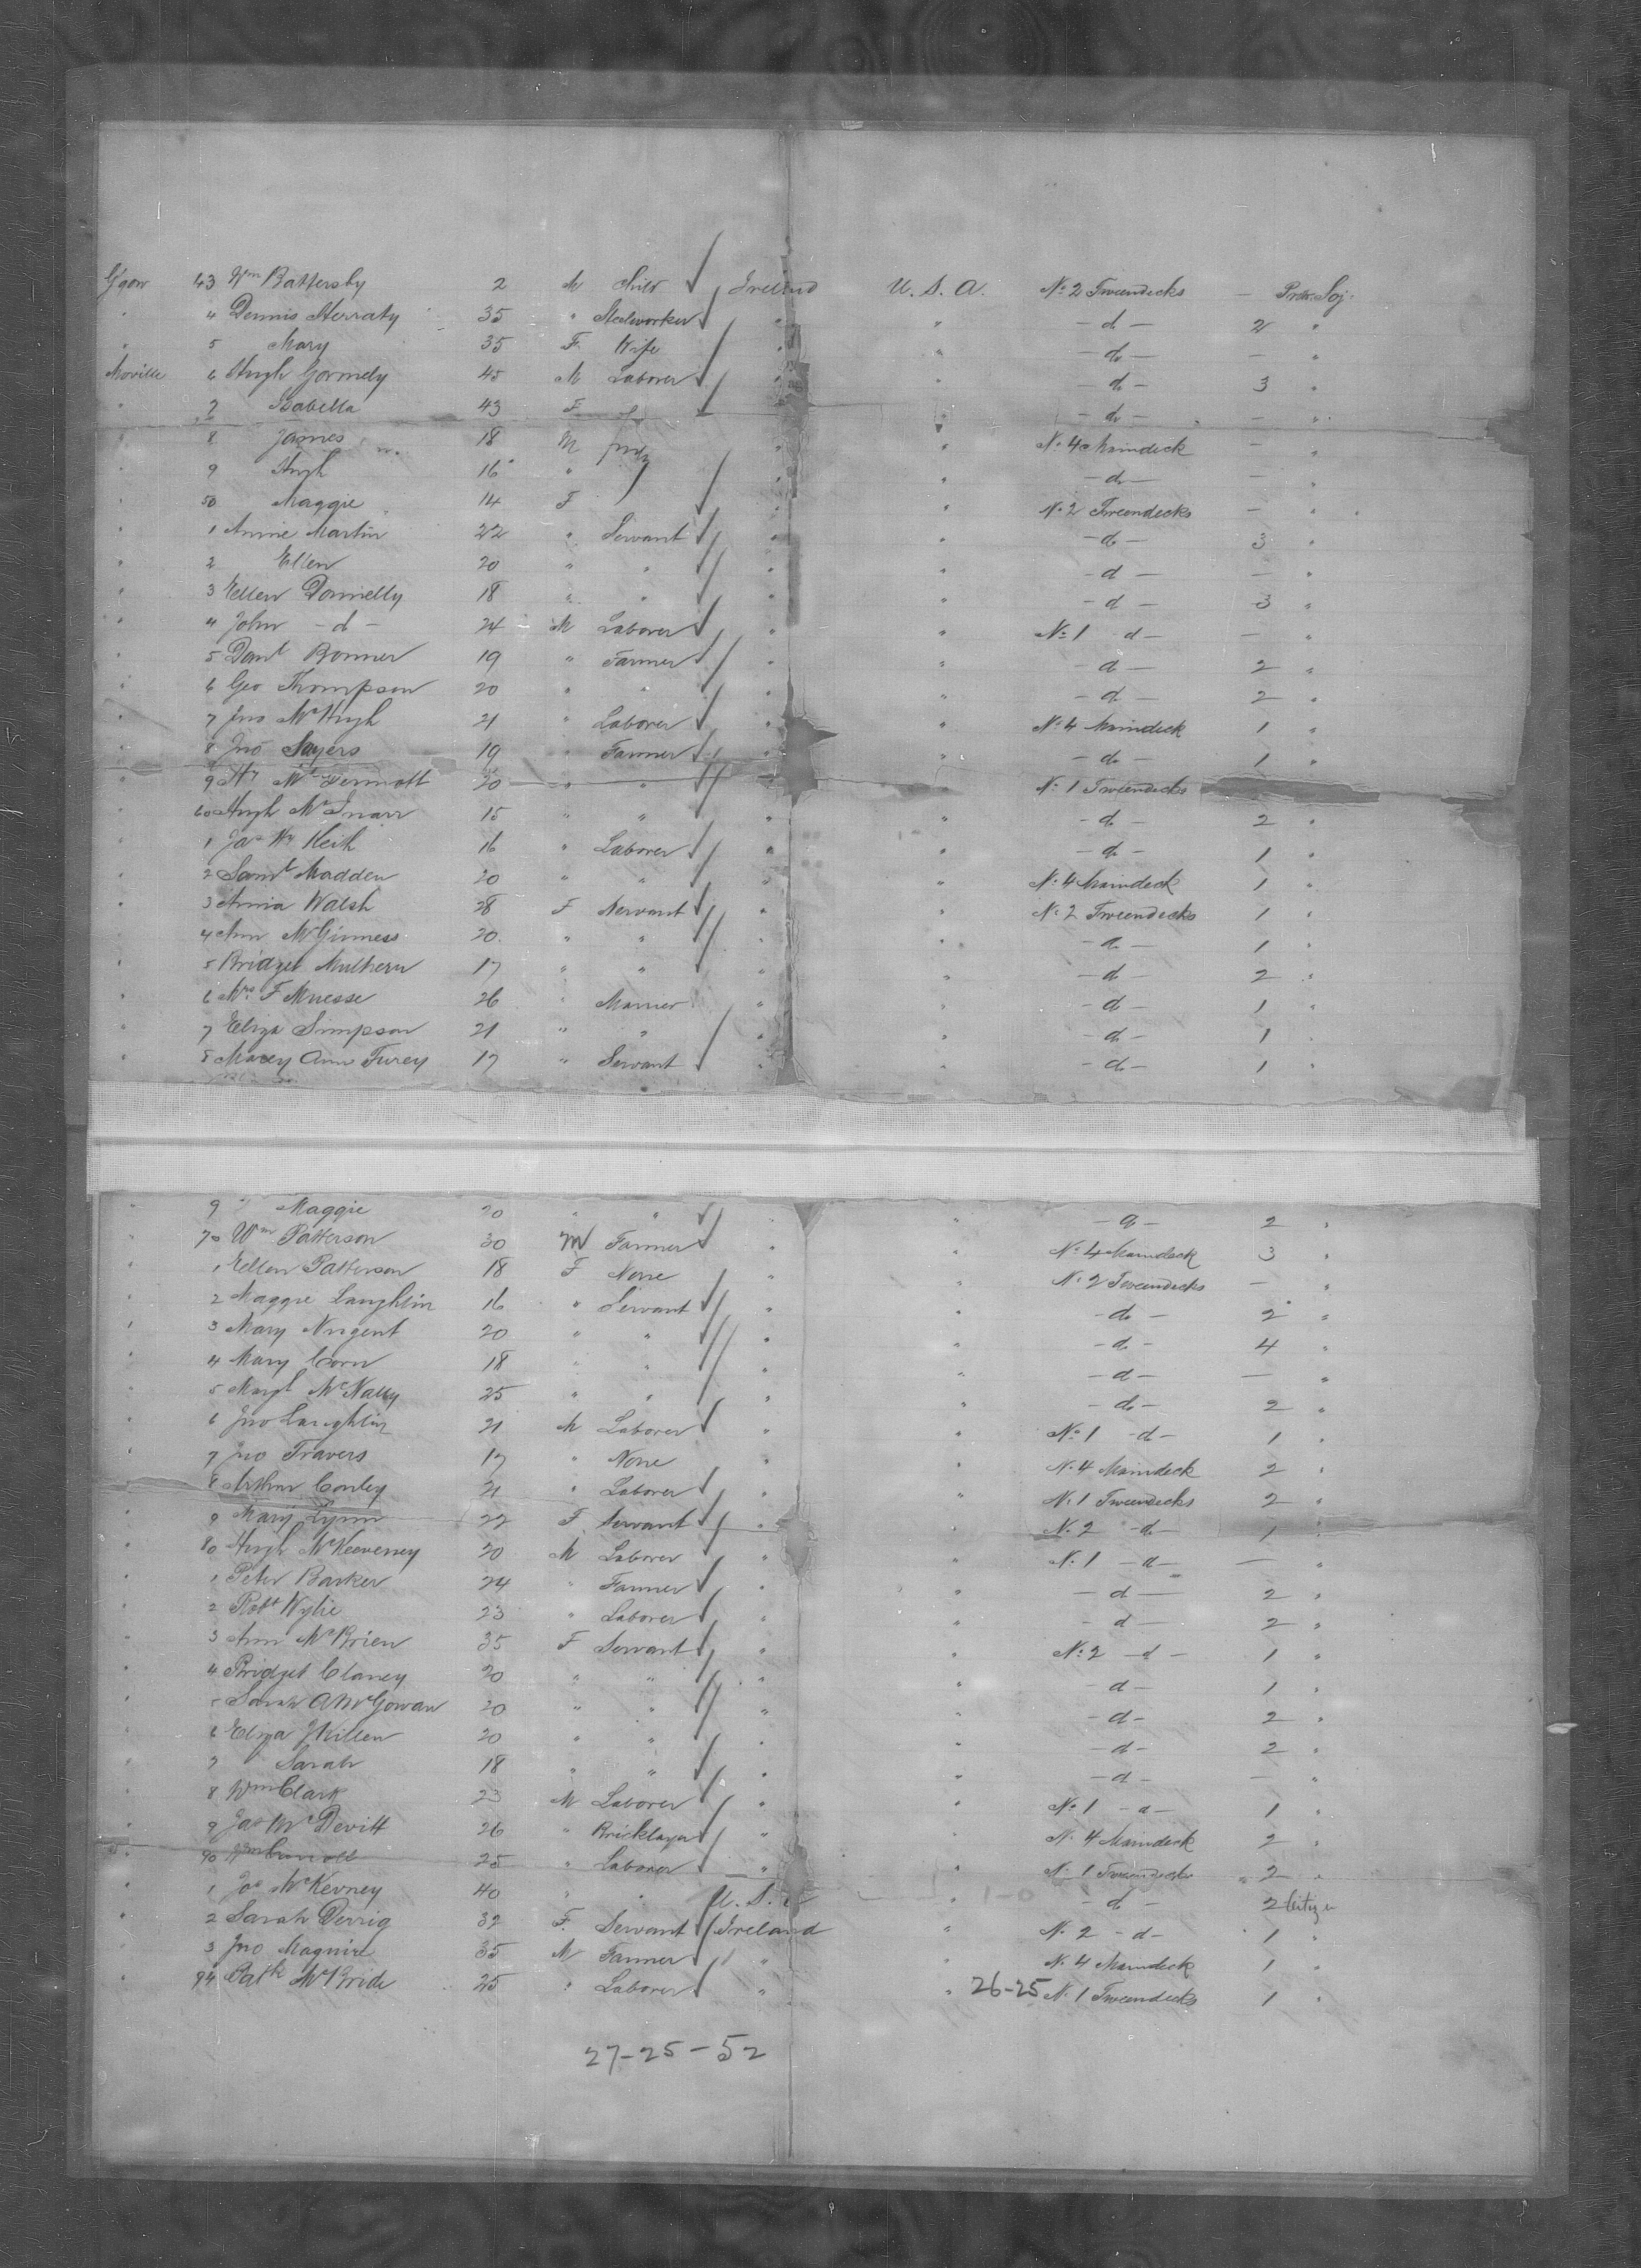 G'gow 43 Wm Battersby 2 M Child Ireland U. S. A. No 2 Tweendecks — Protr. Soj.
" 4 Dennis Sterraty 35 " Steelworker " " - do - 2 "
" 5 Mary 35 F Wife " " - do - — "
Moville 6 Hugh Gormely 45 M Laborer " " - do - 3 "
" 7 Isabella 43 F " " - do - — "
" 8 James 18 M " " No 4 Maindeck — "
" 9 Hugh 16 " " " - do - — "
" 50 Maggie 14 F " " No 2 Tweendecks — "
" 1 Annie Martin 22 " Servant " " - do - 3 "
" 2 Ellen 20 " " " " - d - — "
" 3 Ellen Donnelly 18 " " " " - d - 3 "
" 4 John - d - 24 M Laborer " " No 1 d - — "
" 5 Danl Bonner 19 " Farmer " " - do - 2 "
" 6 Geo Thompson 20 " " " " - d - 2 "
" 7 Jno McHugh 21 " Laborer " " No 4 Maindeck 1 "
" 8 Jno Sayers 19 " Farmer " " - do - 1 "
" 9 Hy McDermott 20 " " " No 1 Tweendecks
" 60 Hugh 15 " " " " - do - 2 "
" 1 Jas Keith 16 " Laborer " " - do - 1 "
" 2 Saml Madden 20 " " " " No 4 Maindeck 1 "
" 3 Annia Walsh 28 F Servant " " No 2 Tweendecks 1 "
" 4 Ann McGinness 20 " " " " - do - 1 "
" 5 Bridget Mulhern 17 " " " " - do - 2 "
" 6 Mrs F 26 " " " - do - 1 "
" 7 Eliza Simpson 21 " " " " - do - 1 "
" 8 Marey Ann Furey 17 " Servant " " - do - 1 "
" 9 " Maggie 20 " " " " - d - 2 "
" 70 Wm Patterson 30 M Farmer " " No 4 Maindeck 3 "
" 1 Ellen Patterson 18 F None " " No 2 Tweendecks — "
" 2 Maggie Laughlin 16 " Servant " " - do - 2 "
" 3 Mary Nugent 20 " " " " - d - 4 "
" 4 Mary Corr 18 " " " " - d - — "
" 5 Margt McNally 25 " " " " - do - 2 "
" 6 Jno Laughlin 21 M Laborer " " No 1 -d- 1 "
" 7 Jno Travers 17 " None " " No 4 Maindeck 2 "
" 8 Arthur Conley 21 " Laborer " " No 1 Tweendecks 2 "
" 9 Mary Lynn 22 F Servant " " No 2 -d- 1 "
" 80 Hugh McKeeveney 20 M Laborer " " No 1 -d- — "
" 1 Peter Barker 24 " Farmer " " - d - 2 "
" 2 Robt Wylie 23 " Laborer " " - d - 2 "
" 3 Ann McBrien 35 F Servant " " No 2 -d- 1 "
" 4 Bridget Clancy 20 " " " " - d - 1 "
" 5 Sarah A McGowan 20 " " " " - d - 2 "
" 6 Eliza J Killen 20 " " " " - d - 2 "
" 7 Sarah 18 " " " " - d - — "
" 8 Wm Clark 23 M Laborer " " No 1 -d- 1 "
" 9 Jas McDevitt 26 " Bricklayer " " No 4 Maindeck 2 "
" 90 Wm 25 " Laborer " " No 1 Tweendecks 2 "
" 1 Jas McKevney 40 " " U. S. A " - d - 2 Citizen
" 2 Sarah Derrig 32 F Servant Ireland " No 2 -d- 1 "
" 3 Jno Maguire 35 M Farmer " No 4 Maindeck 1 "
" 94 Patk McBride 25 " Laborer " " 26-25 No 1 Tweendecks 1 "
27-25-52